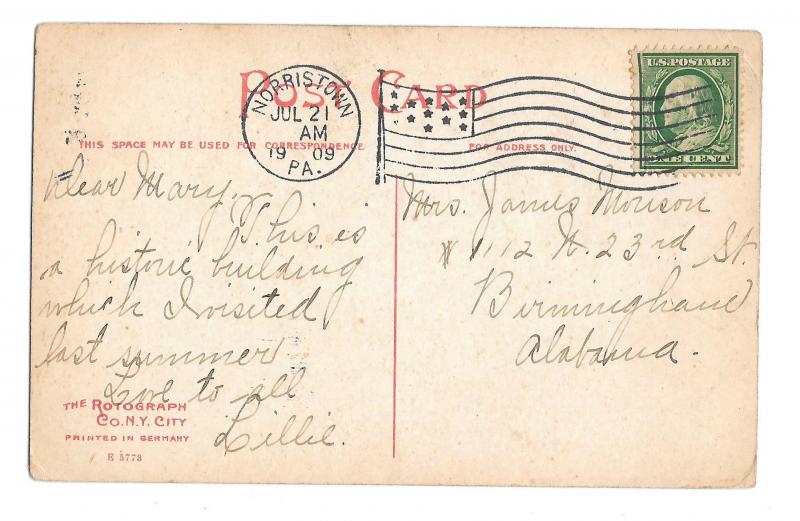 POST CARD
NORRISTOWN
JUL 21
AM
1909
PA.
U.S. POSTAGE
ONE CENT
THIS SPACE MAY BE USED FOR CORRESPONDENCE.
FOR ADDRESS ONLY.
Dear Mary,
This is
a historic building
which I visited
last summer
Love to all
Lillie.
Mrs. James Morison
1112 N. 23rd St.
Birmingham
Alabama.
THE ROTOGRAPH
CO. N.Y. CITY
PRINTED IN GERMANY
E 5773